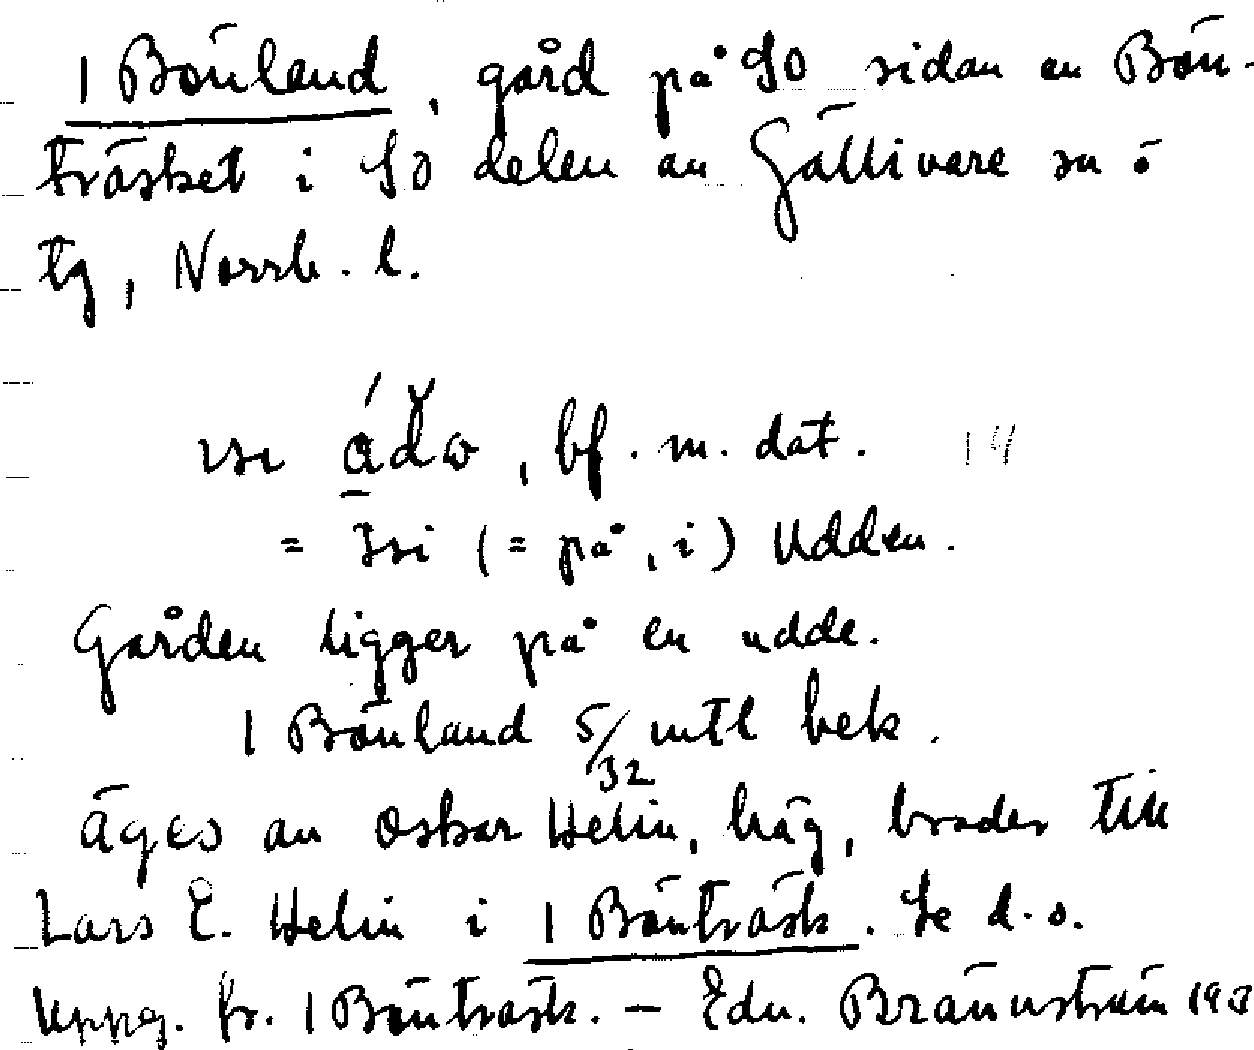 1 Bönland, gård på SO sidan av Bön-
träsket i SO delen av Gällivare sn o
tg, Norrb. l.
, bf. m. dat. 14
= (= på, i) Udden.
Gården ligger på en udde.
1 Bönland 5/32 mtl bek.
äges av Oskar Helin, häg, broder till
Lars E. Helin i 1 Bönträsk. Se d.o.
Uppg. fr. 1 Bönträsk. — Edv. Brännström